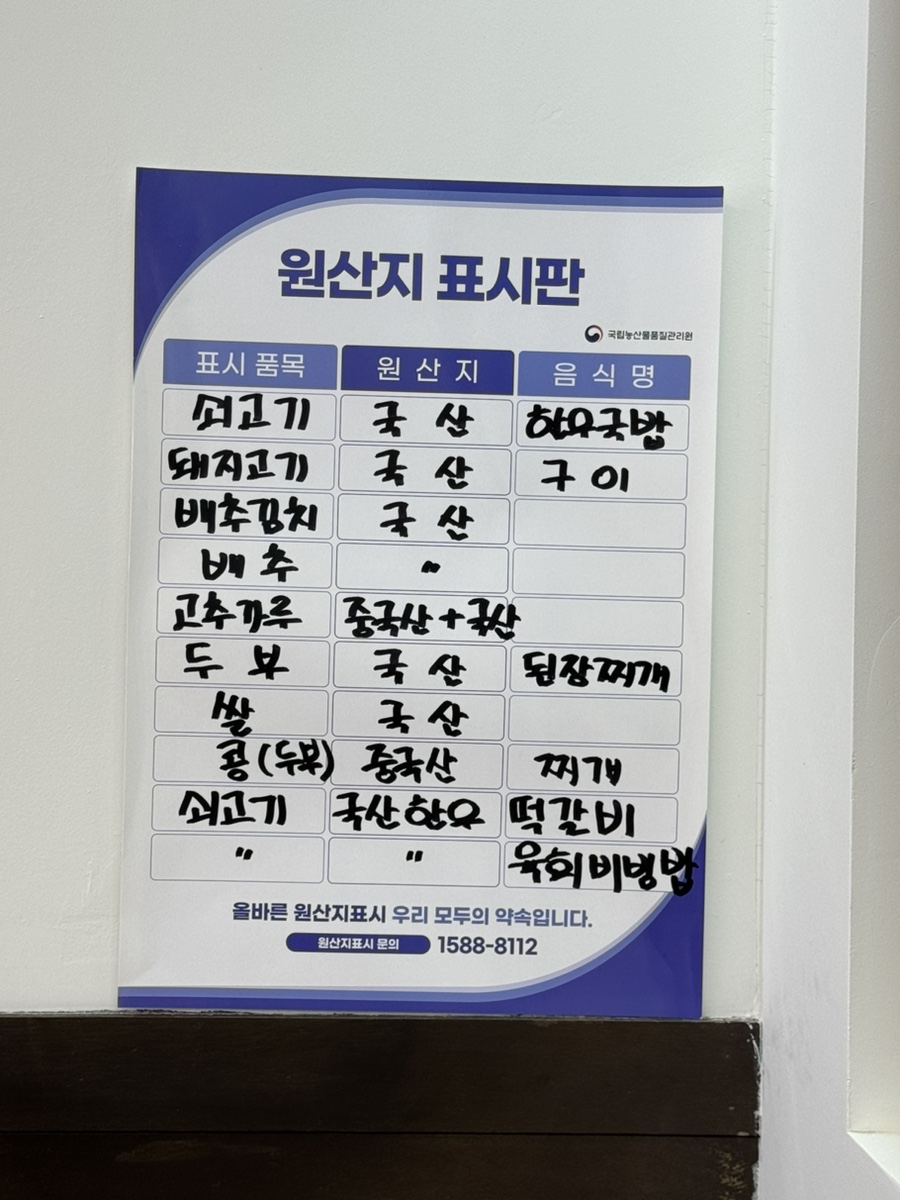 원산지 표시판
국립농산물품질관리원
표시 품목 원 산 지 음 식 명
쇠고기 국 산 한우국밥
돼지고기 국 산 구 이
배추김치 국 산
배 추 〃
고추가루 중국산+국산
두 부 국 산 된장찌개
쌀 국 산
콩(두부) 중국산 찌개
쇠고기 국산한우 떡갈비
〃 〃 육회비빙밥
올바른 원산지표시 우리 모두의 약속입니다.
원산지표시 문의 1588-8112